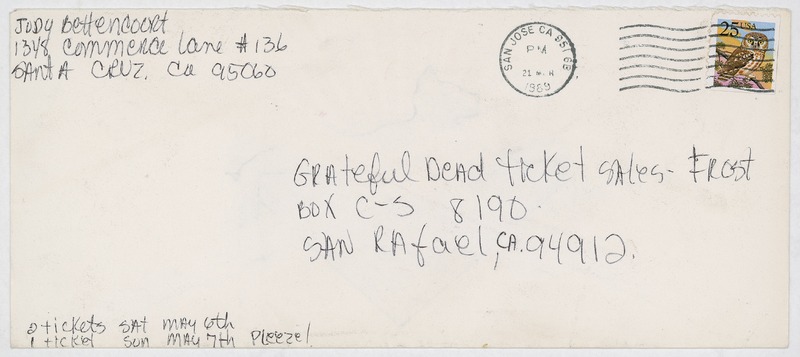 Judy Bettencourt
1348 Commerce Lane #136
Santa Cruz, Ca 95060
SAN JOSE CA 951 6B
PM
21
1989
25 USA
Grateful Dead Ticket Sales - Frost
Box C-S 8190.
San Rafael, CA. 94912.
2 tickets Sat May 6th
1 ticket Sun May 7th Pleeze!